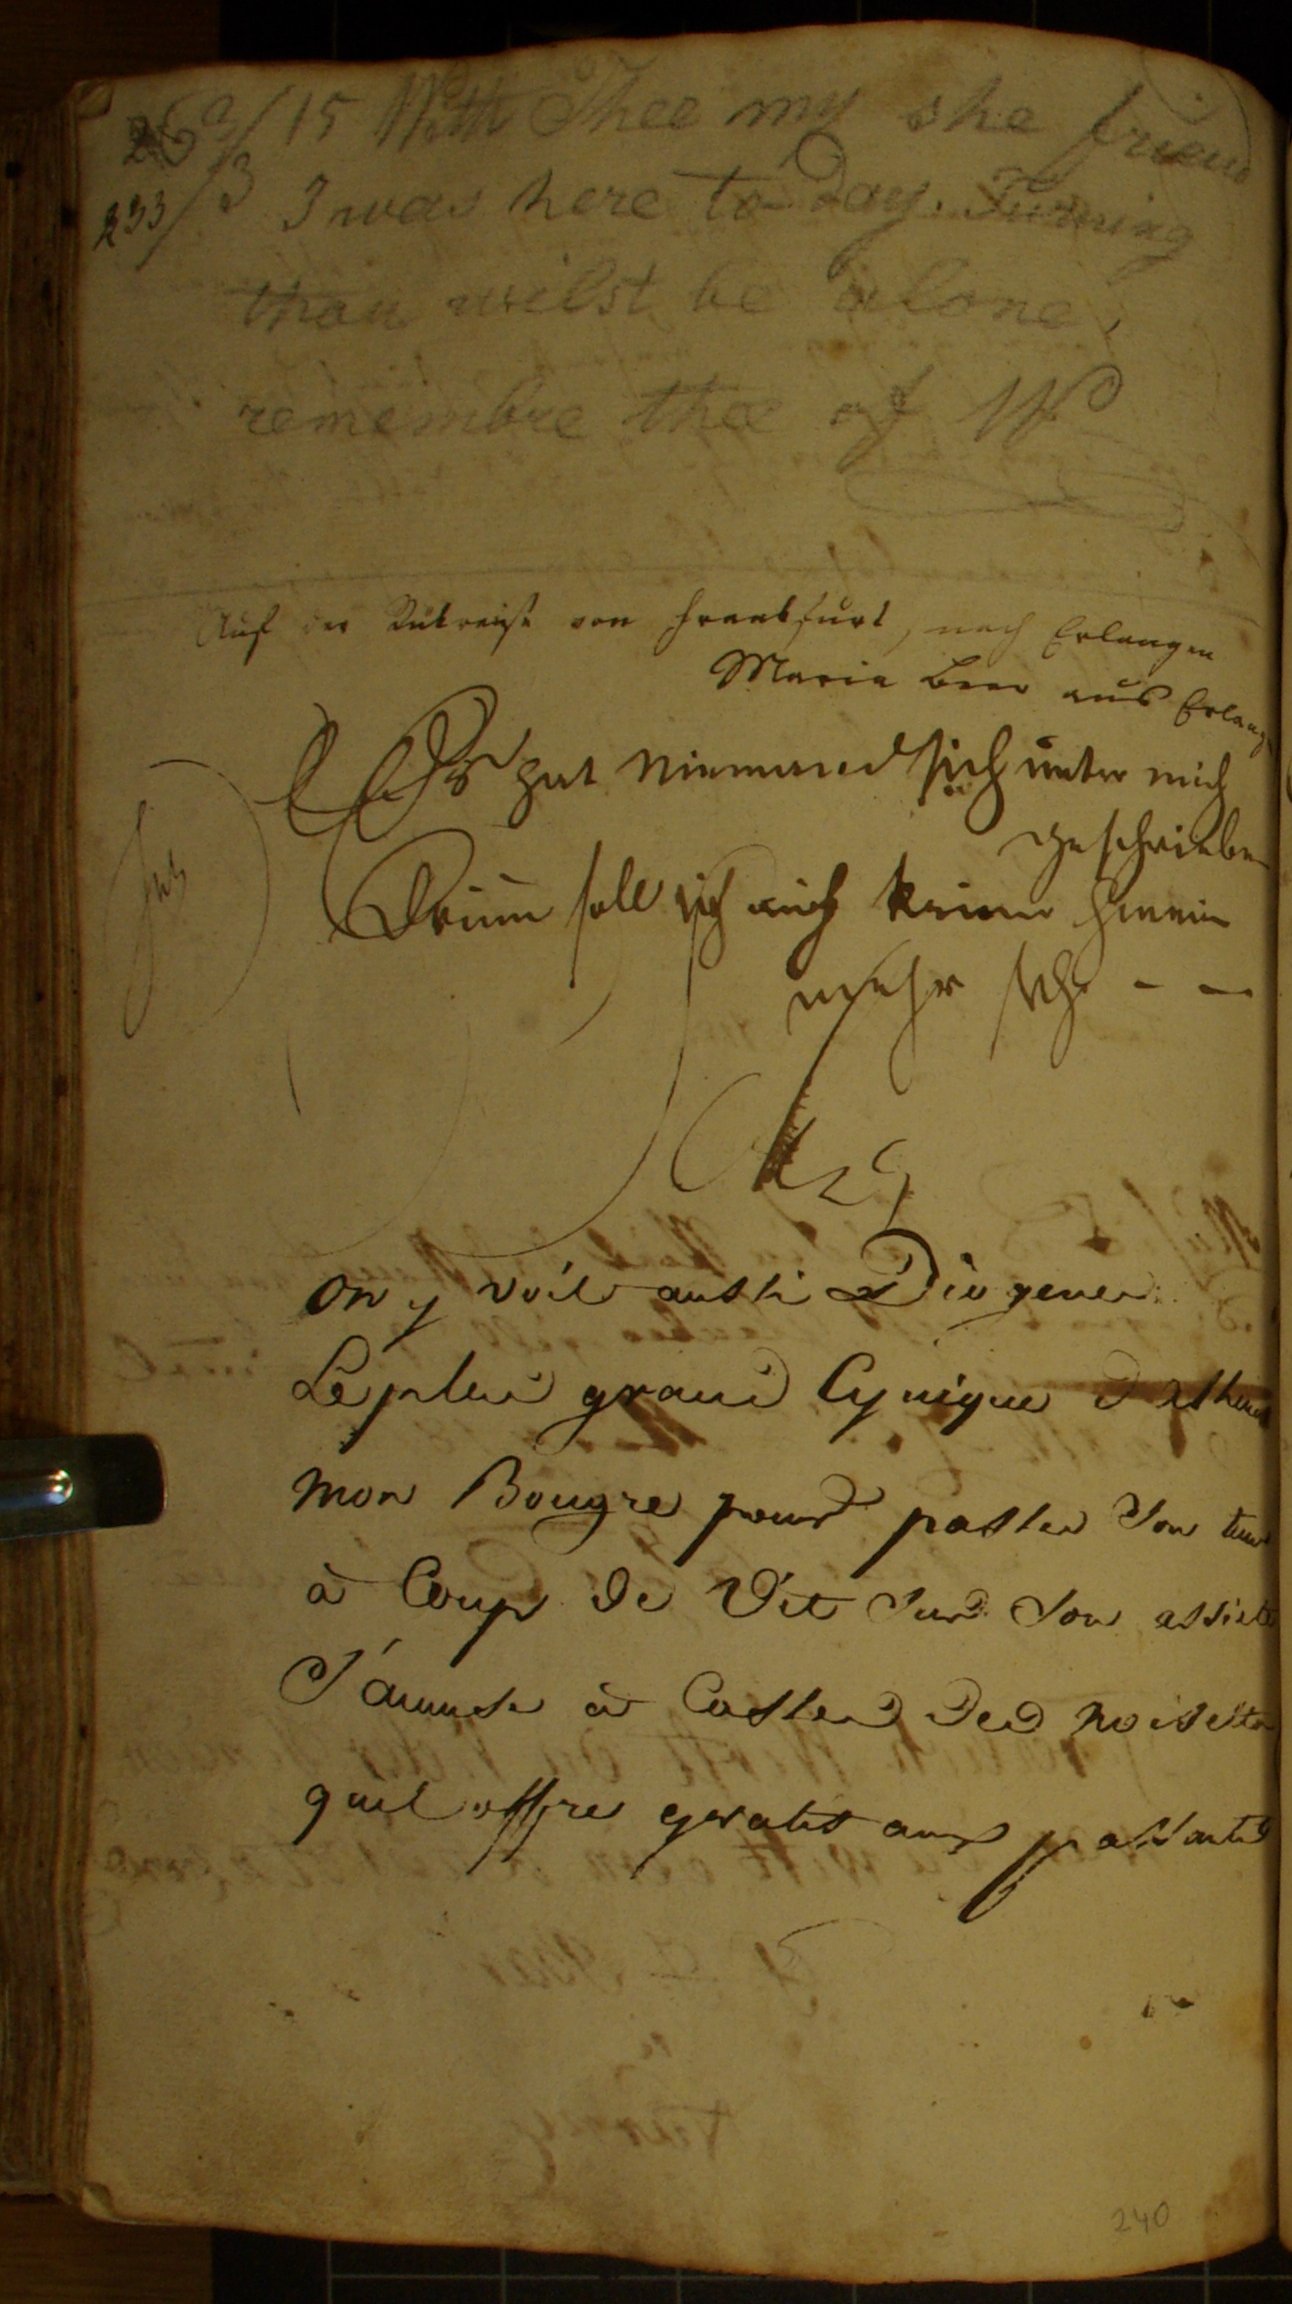 26/9/15 With Thee my she friend
233/3 I was here to Day. Turning
thou wilst be alone,
remembre thee of W
Auf der Rükreiße von Frankfurt, nach Erlangen
Maria Beer aus Erlang
Es hat Niemand sich unter mich
geschrieben
Drum soll sich auch keiner hinein
mehr sch - -
on y voit aussi Diogenes
Le plus grand Cynique d'athenes
mon Bougre pour passer son tems
à Coups de Vit sur son assiette
S'amuse à Casser des noisettes
quil offre gratis aux passants
240